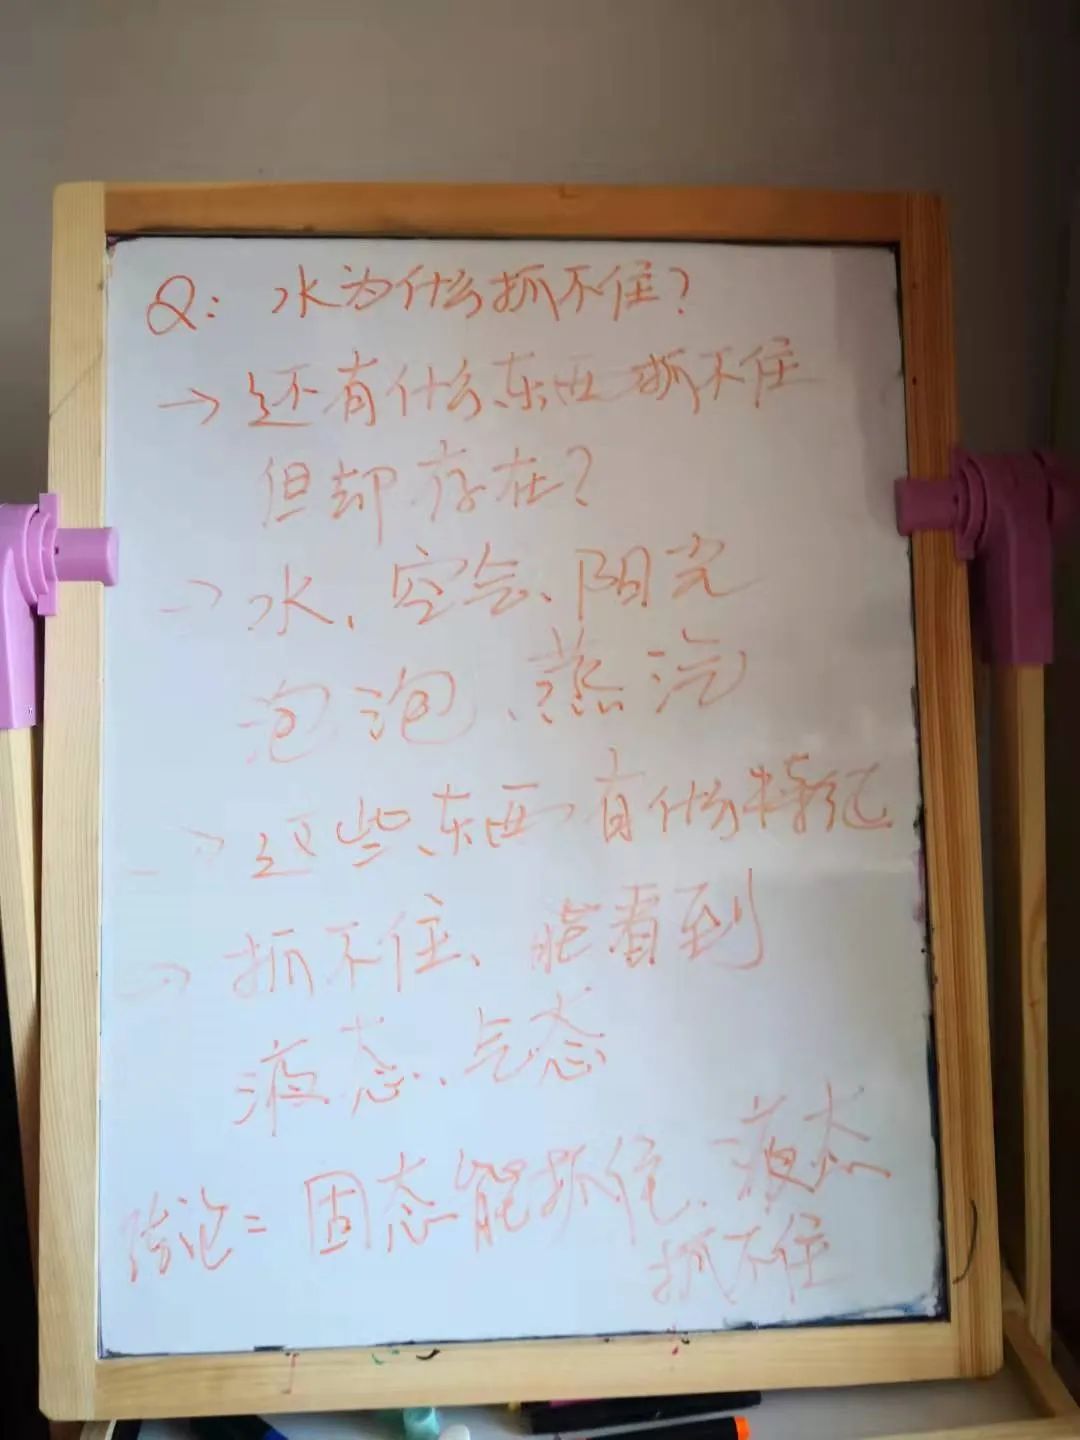 Q: 水为什么抓不住?
→ 还有什么东西抓不住
但却存在?
→ 水、空气、阳光
泡泡、蒸汽
→ 这些东西有什么特征
→ 抓不住、能看到
液态、气态
结论= 固态能抓住、液态
抓不住